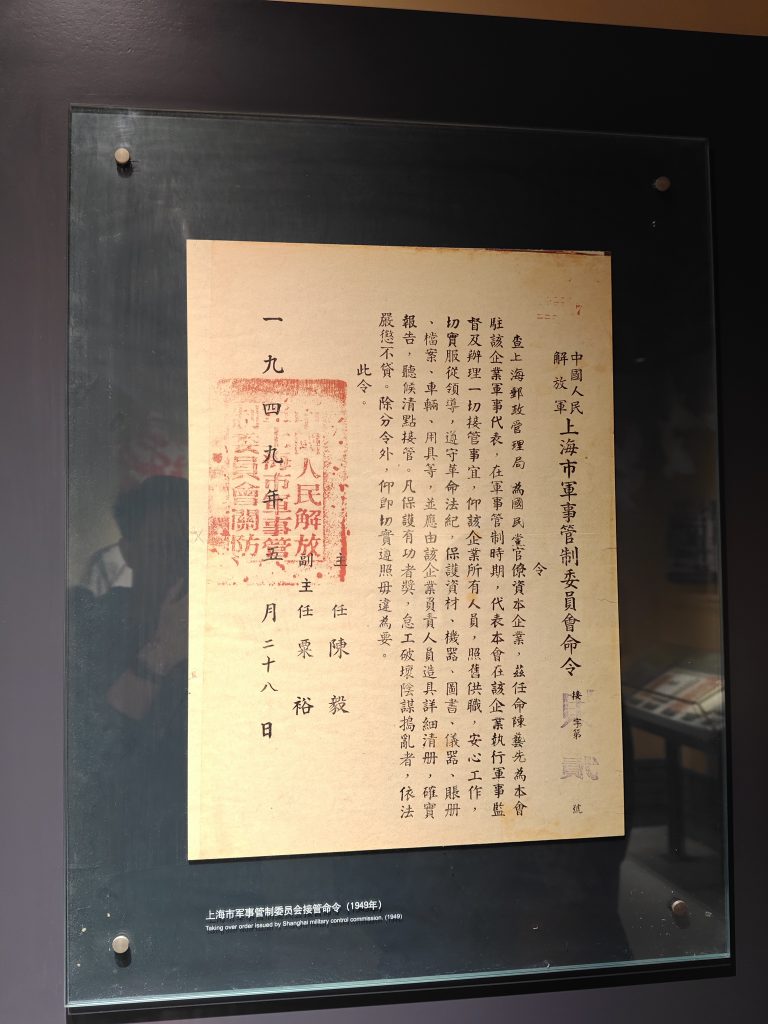 中國人民
解放軍
上海市軍事管制委員會命令
接字第 貳 號
令
查上海郵政管理局 為國民黨官僚資本企業，茲任命陳藝先為本會
駐該企業軍事代表，在軍事管制時期，代表本會在該企業執行軍事監
督及辦理一切接管事宜，仰該企業所有人員，照舊供職，安心工作，
切實服從領導，遵守革命法紀，保護資材、機器、圖書、儀器、賬册
、檔案、車輛、用具等，並應由該企業負責人員造具詳細清册，確實
報告，聽候清點接管。凡保護有功者獎，怠工破壞陰謀搗亂者，依法
嚴懲不貸。除分令外，仰即切實遵照毋違為要。
此令。
主任 陳毅
副主任 粟裕
一九四九年五月二十八日
中國人民解放
軍上海市軍事管
制委員會關防
上海市军事管制委员会接管命令（1949年）
Taking over order issued by Shanghai military control commission. (1949)